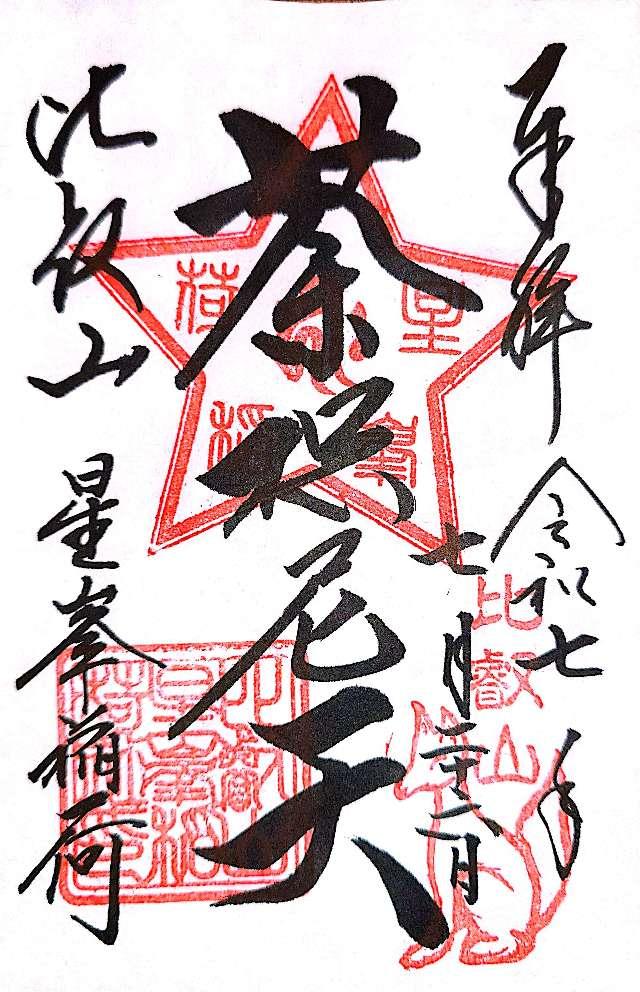 奉拝
令和七年
七月二十二日
比叡山
荼枳尼天
星峯稲荷
比叡山
星峯稲荷